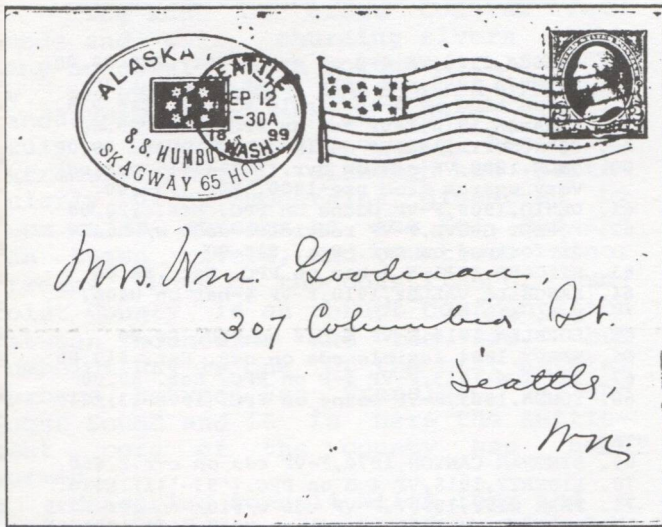 ALASKA
S.S. HUMBOL
SKAGWAY 65 HOU
SEATTLE
SEP 12
-30A
18 99
WASH.
Mrs. Wm. Goodman
307 Columbia St.
Seattle
Wn.